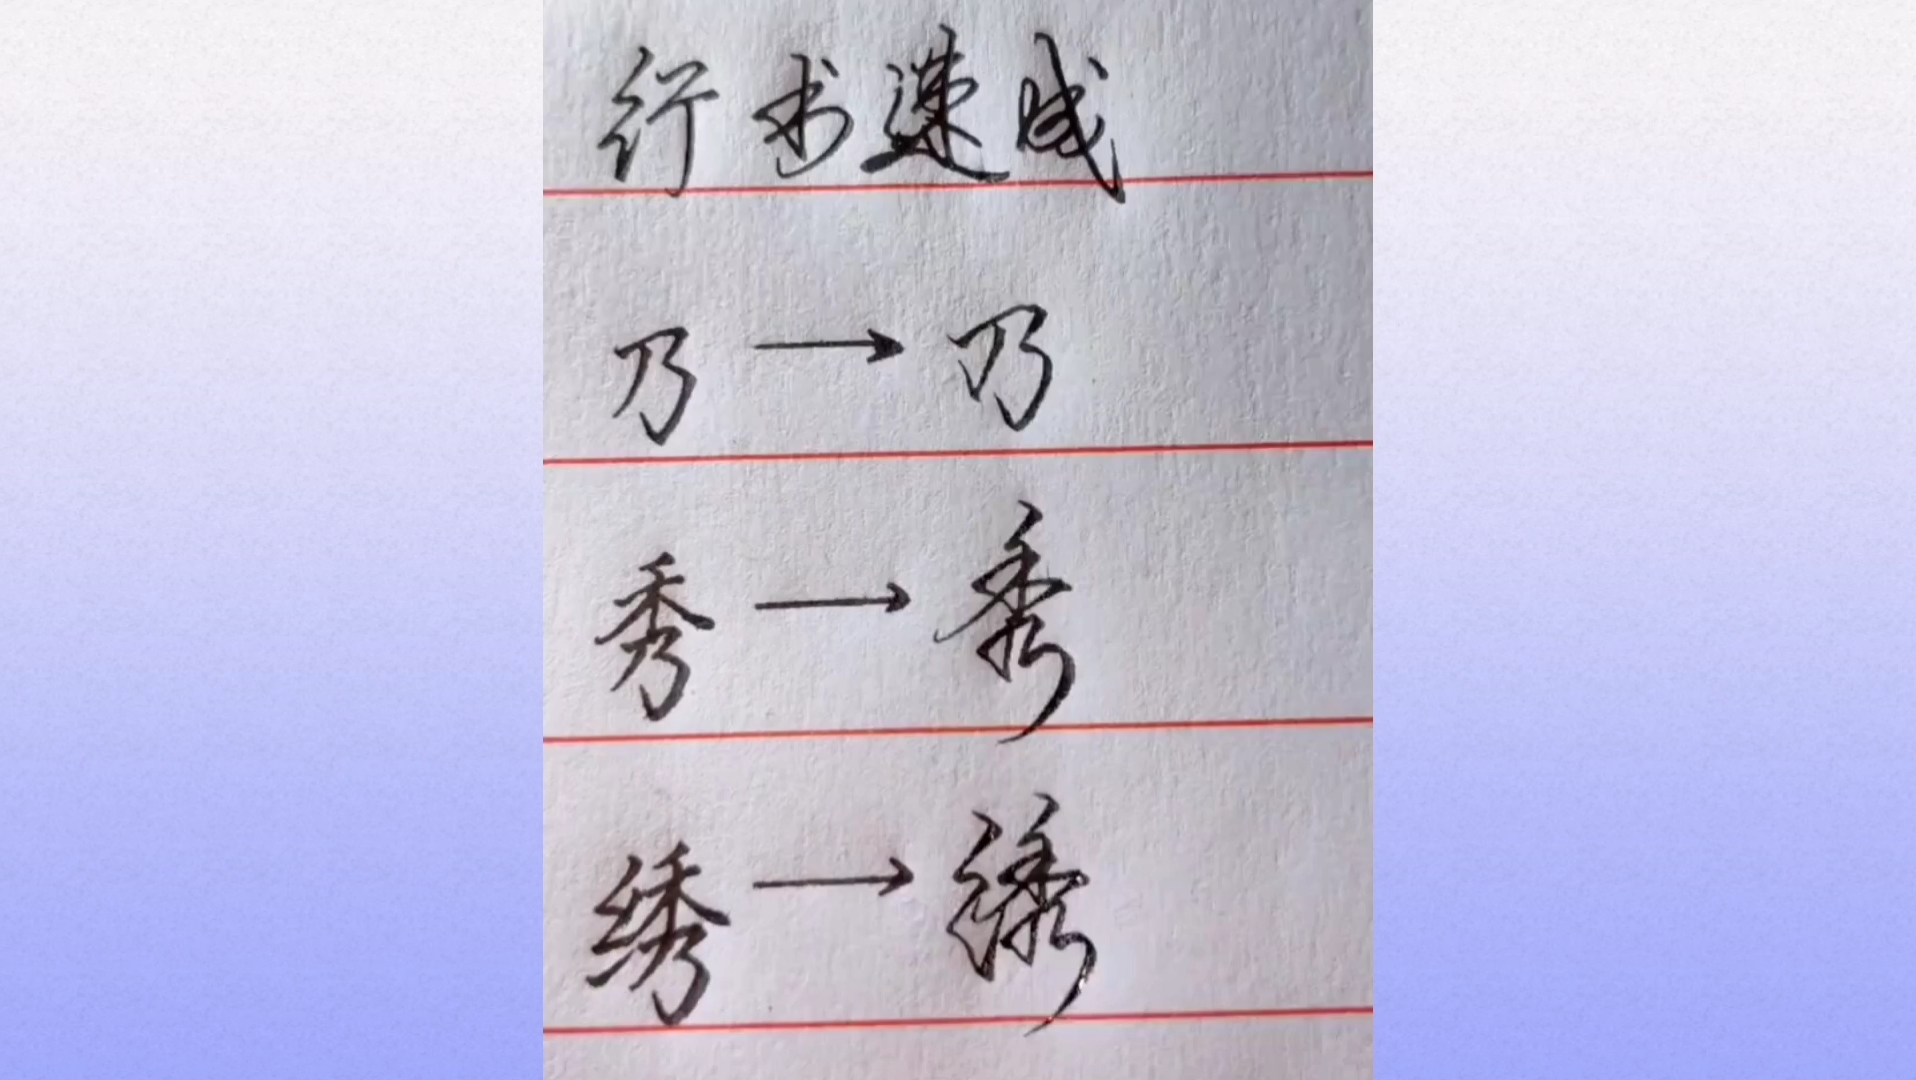 行书速成
乃→乃
秀→秀
绣→绣